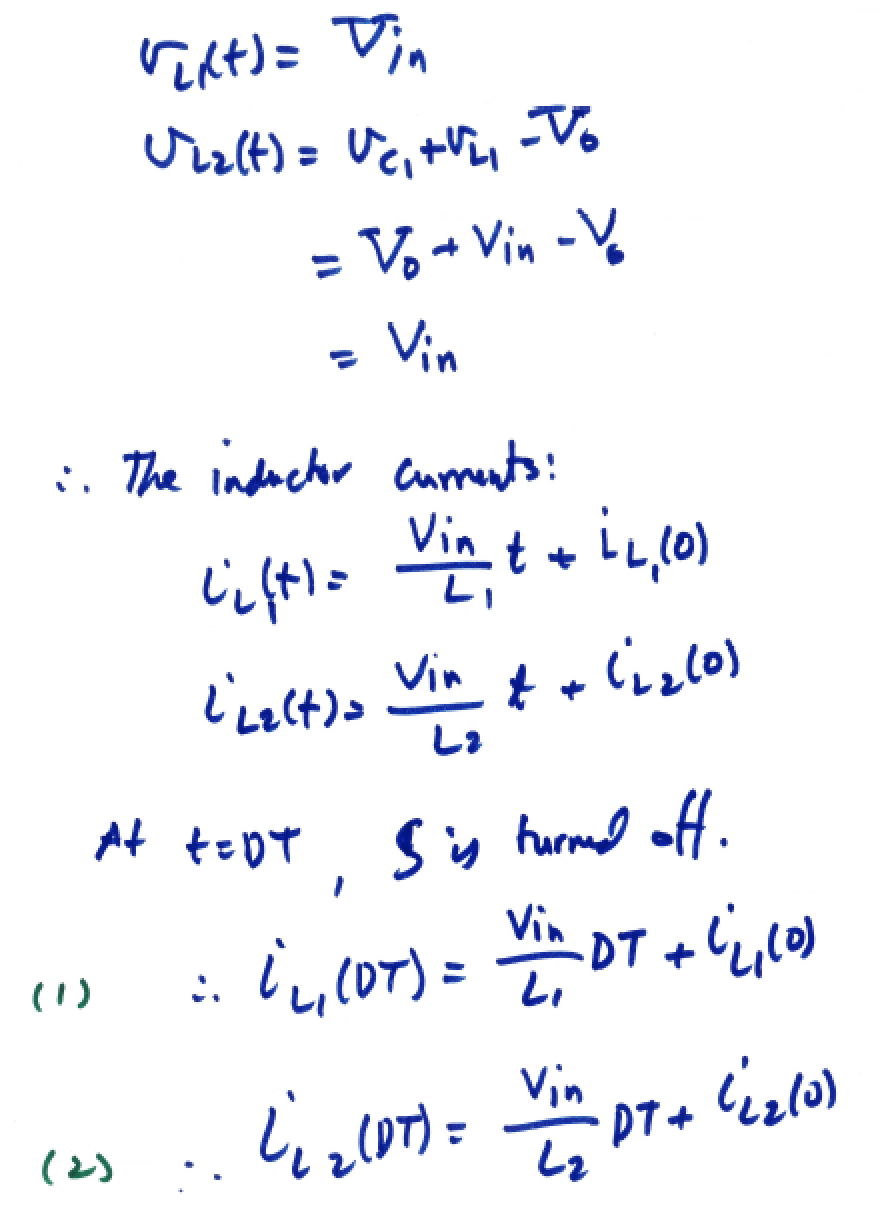 v_L1(t) = Vin
v_L2(t) = v_C1 + v_L1 - V0
= V0 + Vin - V0
= Vin
∴ The inductor currents:
i_L1(t) = Vin/L1 t + i_L1(0)
i_L2(t) = Vin/L2 t + i_L2(0)
At t=DT, S is turned off.
(1) ∴ i_L1(DT) = Vin/L1 DT + i_L1(0)
(2) ∴ i_L2(DT) = Vin/L2 DT + i_L2(0)